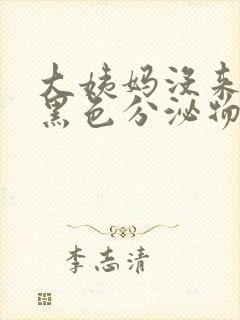 大姨妈没来
黑色分泌物
李志清